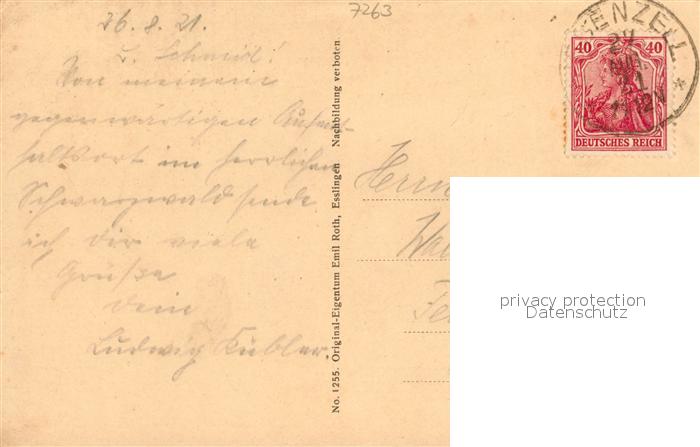 26.8.21.
L. Schmid!
Von meinem
gegenwärtigen Aufent-
haltsort im herrlichen
Schwarzwald sende
ich dir viele
Grüße
dein
Ludwig Kübler.
7263
No. 1255. Original-Eigentum Emil Roth, Esslingen Nachbildung verboten
ENZELL
40 40
DEUTSCHES REICH
Herrn
privacy protection
Datenschutz